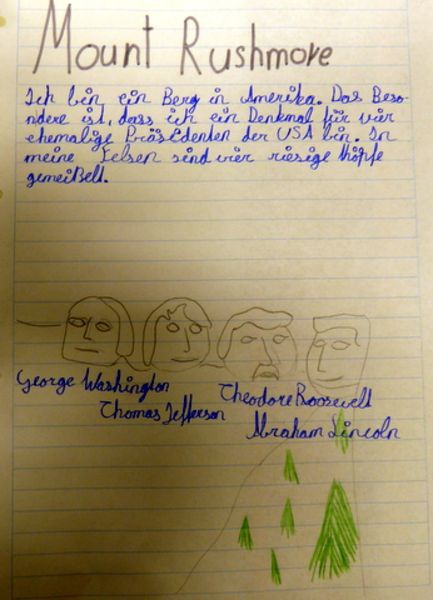 Mount Rushmore
Ich bin ein Berg in Amerika. Das Beso-
ndere ist, dass ich ein Denkmal für vier
ehemalige Präsidenten der USA bin. In
meine Felsen sind vier riesige Köpfe
gemeißelt.
George Washington
Theodore Roosevelt
Thomas Jefferson
Abraham Lincoln